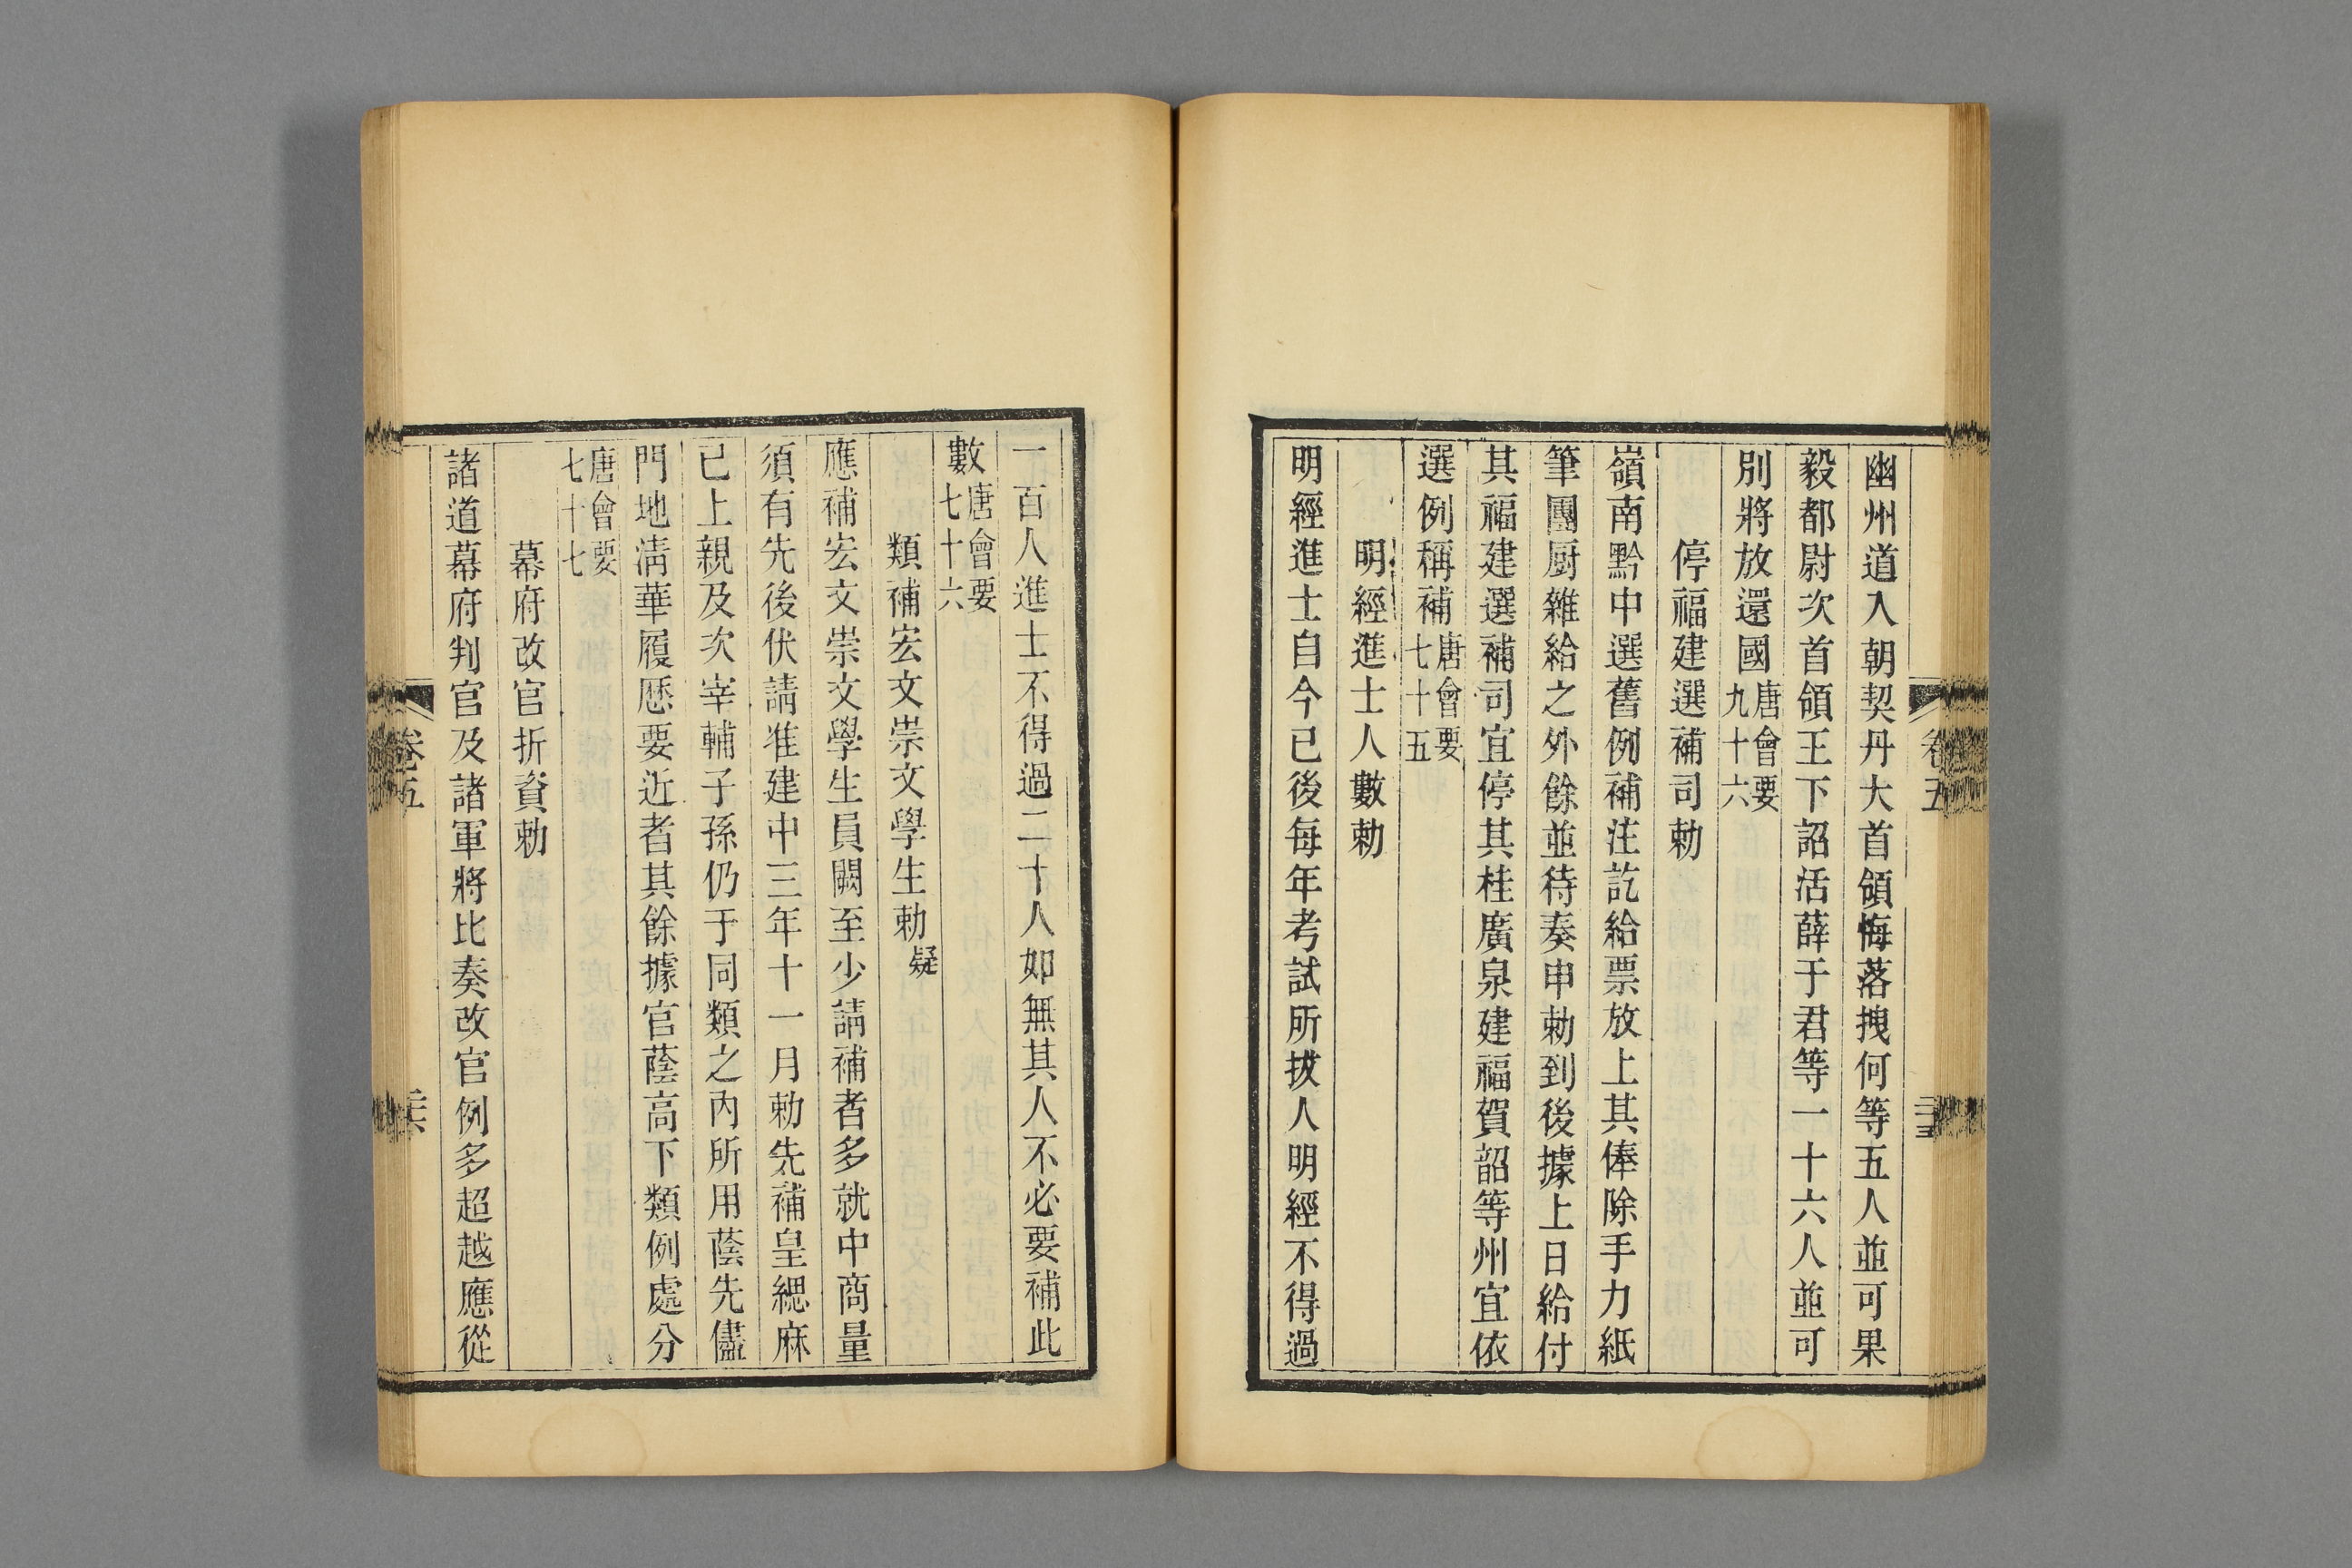 幽州道入朝契丹大首領悔落拽何等五人並可果
毅都尉次首領王下詔活薛于君等一十六人並可
別將放還國唐會要九十六
停福建選補司勅
嶺南黔中選舊例補注訖給票放上其俸除手力紙
筆團厨雜給之外餘並待奏申勅到後據上日給付
其福建選補司宜停其桂廣泉建福賀韶等州宜依
選例稱補唐會要七十五
明經進士人數勅
明經進士自今已後每年考試所拔人明經不得過
卷五
一百人進士不得過二十人如無其人不必要補此
數唐會要七十六
類補宏文崇文學生勅疑
應補宏文崇文學生員闕至少請補者多就中商量
須有先後伏請准建中三年十一月勅先補皇緦麻
已上親及次宰輔子孫仍于同類之內所用蔭先儘
門地淸華履歷要近者其餘據官蔭高下類例處分
唐會要七十七
幕府改官折資勅
諸道幕府判官及諸軍將比奏改官例多超越應從
卷五